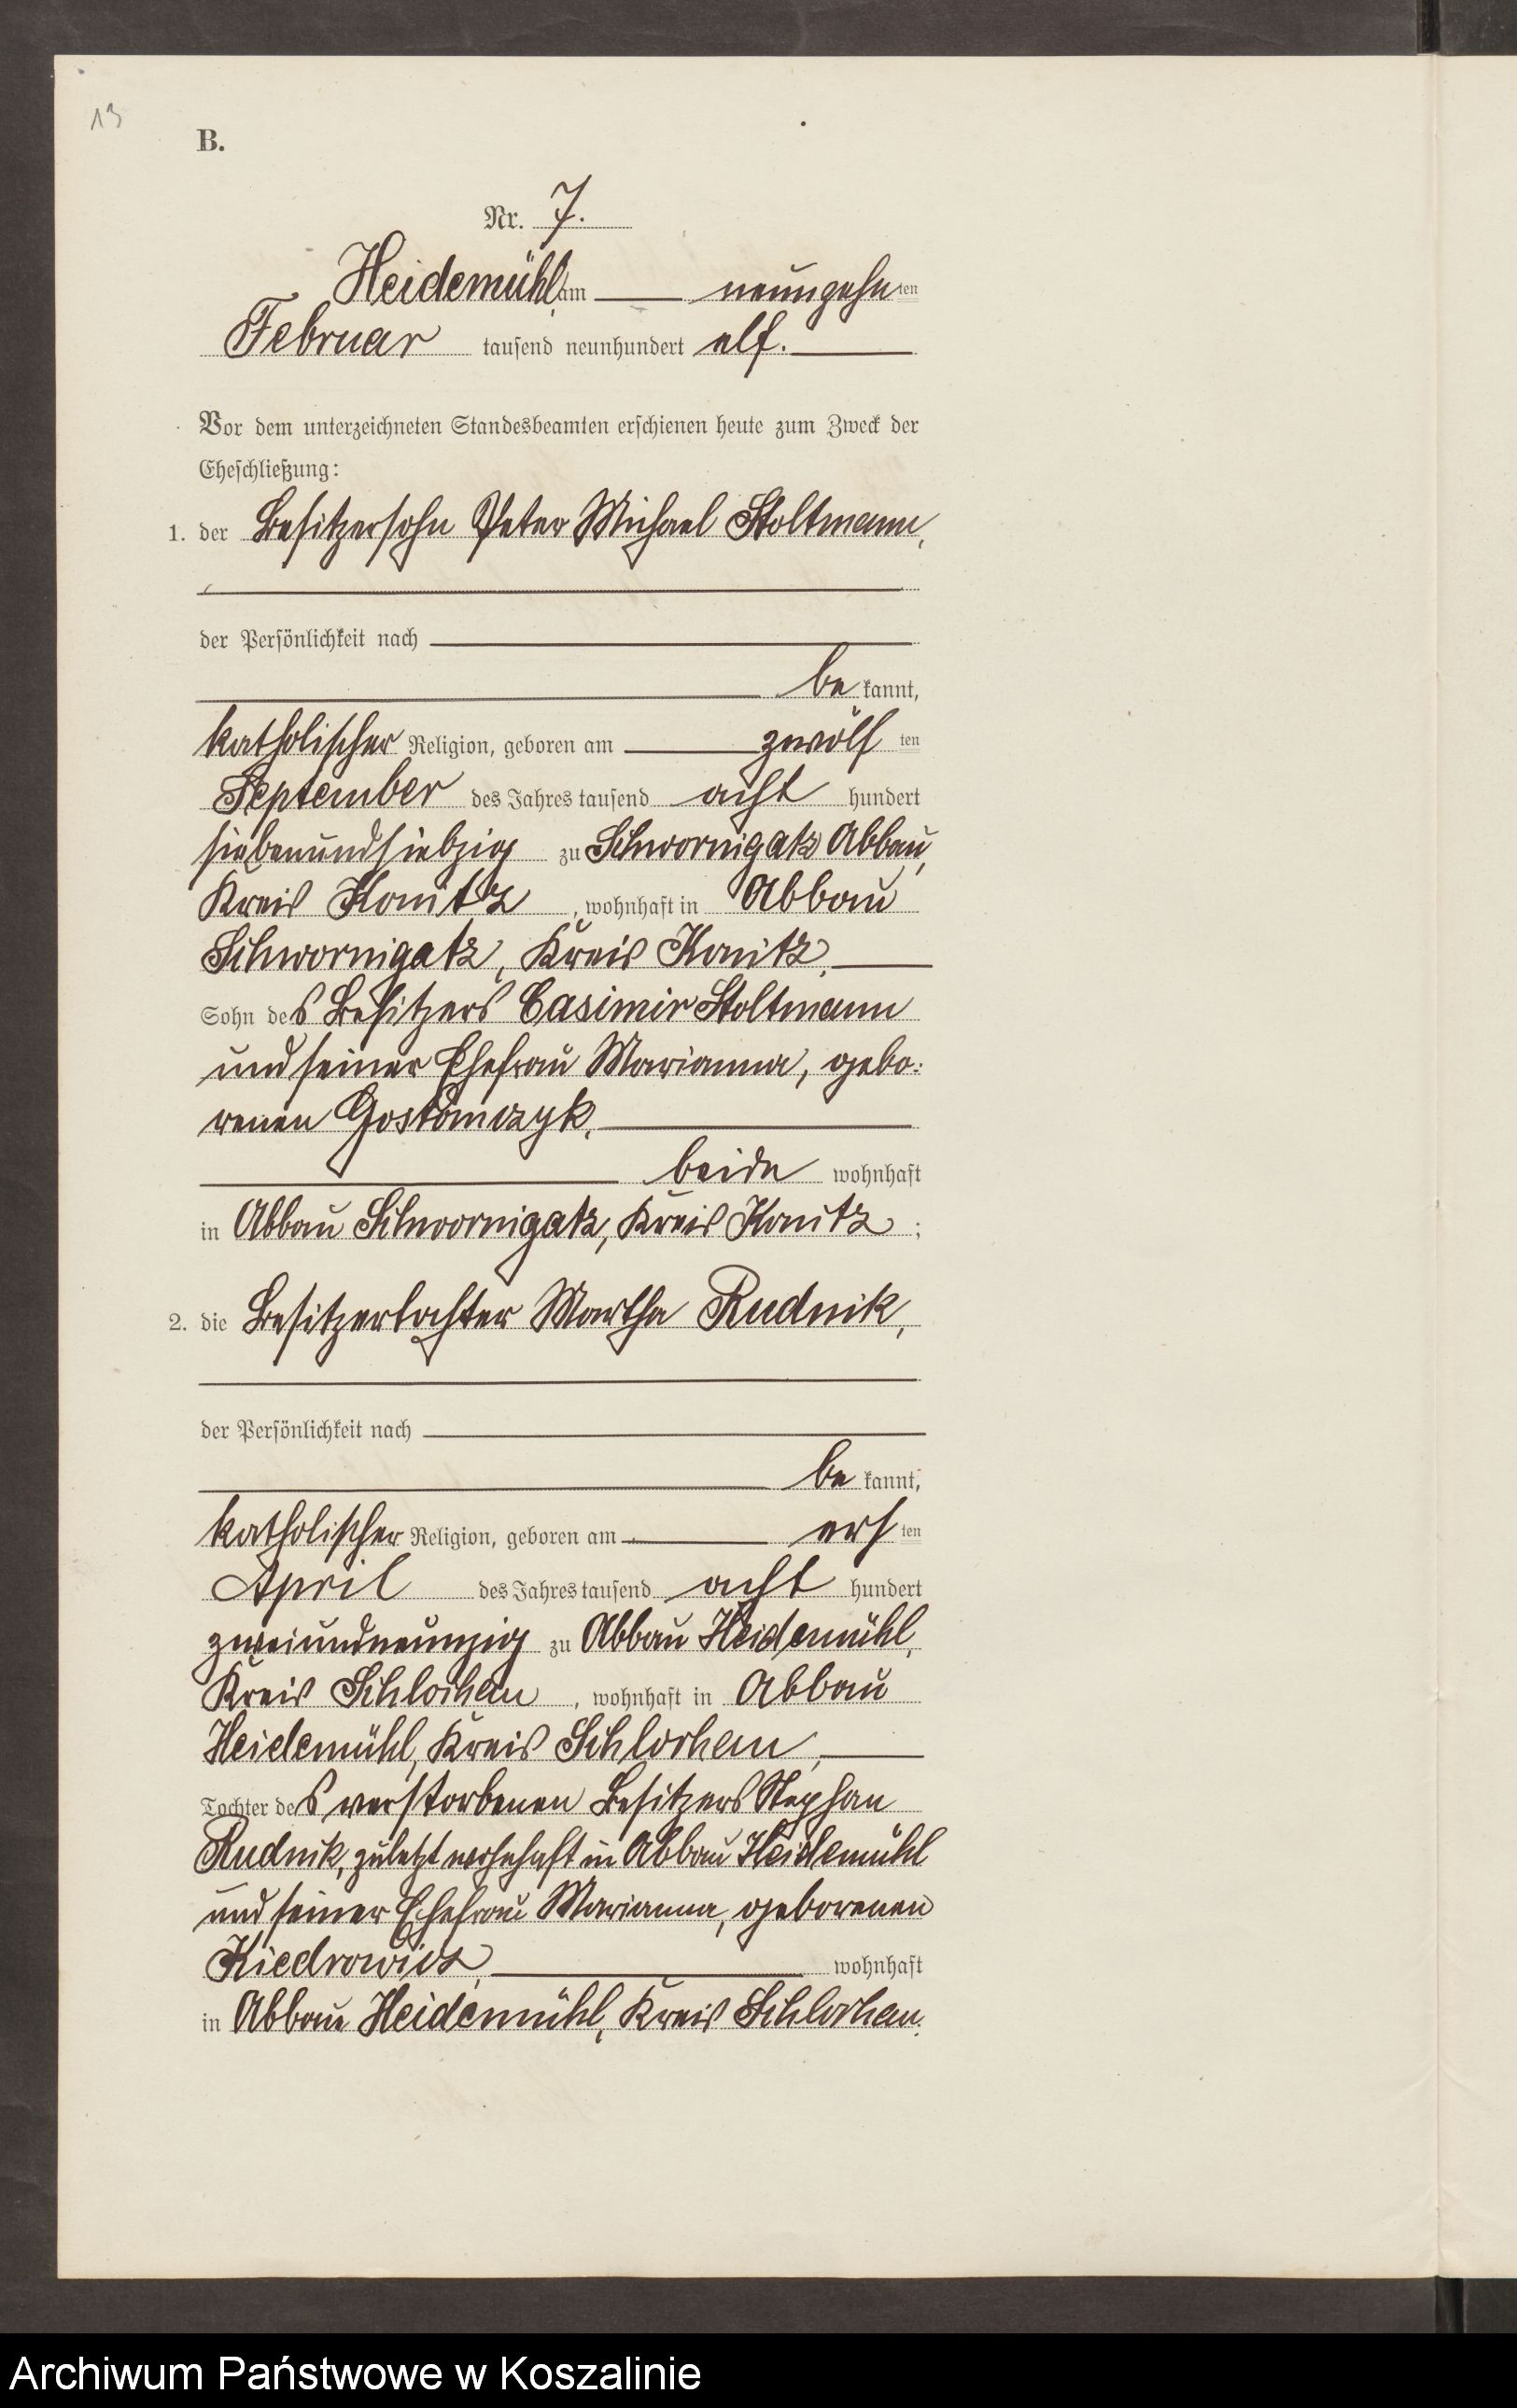 13
B.
Nr. 7.
Heidemühl, am neunzehnten
Februar tausend neunhundert elf.
Vor dem unterzeichneten Standesbeamten erschienen heute zum Zweck der
Eheschließung:
1. der Besitzersohn Peter Michael Stoltmann,
der Persönlichkeit nach
bekannt,
katholischer Religion, geboren am zwölften
September des Jahres tausend acht hundert
siebenundsiebzig zu Schwornigatz Abbau,
Kreis Konitz, wohnhaft in Abbau
Schwornigatz, Kreis Konitz,
Sohn des Besitzers Casimir Stoltmann
und seiner Ehefrau Marianna, gebo:
renen Gostomczyk,
beide wohnhaft
in Abbau Schwornigatz, Kreis Konitz;
2. die Besitzertochter Martha Rudnik,
der Persönlichkeit nach
bekannt,
katholischer Religion, geboren am ersten
April des Jahres tausend acht hundert
zweiundneunzig zu Abbau Heidemühl,
Kreis Schlochau, wohnhaft in Abbau
Heidemühl, Kreis Schlochau,
Tochter des verstorbenen Besitzers Stephan
Rudnik, zuletzt wohnhaft in Abbau Heidemühl
und seiner Ehefrau Marianna, geborenen
Kiedrowicz, wohnhaft
in Abbau Heidemühl, Kreis Schlochau.
Archiwum Państwowe w Koszalinie